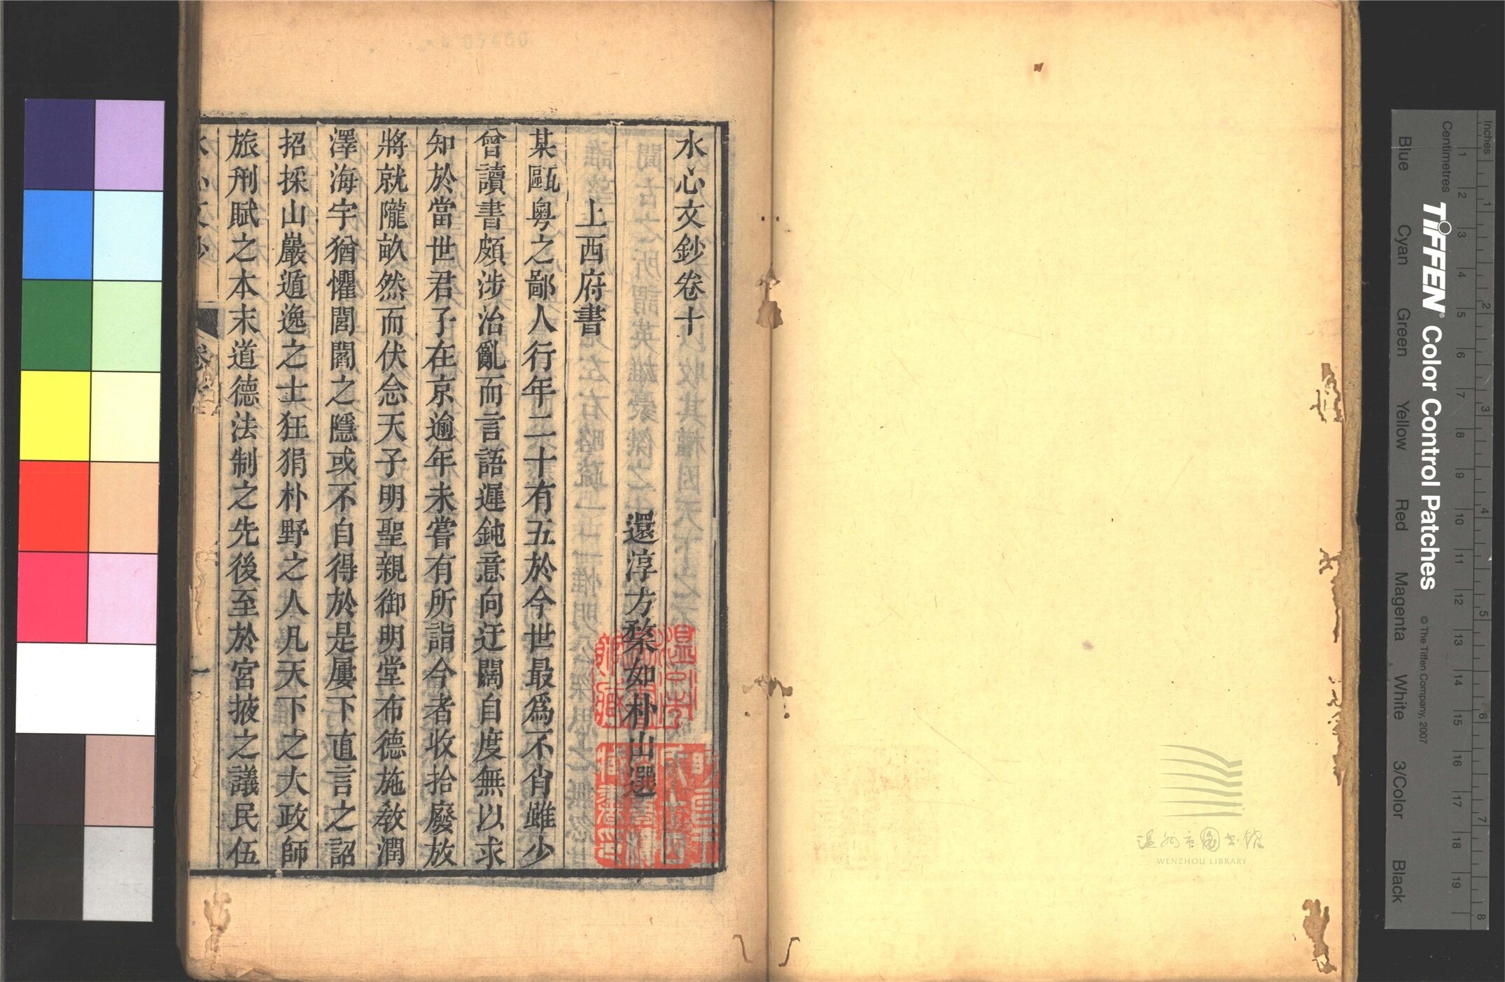 水心文鈔卷十
還淳方楘如朴山選
上西府書
某甌粵之鄙人行年二十有五於今世最爲不肖雖少
曾讀書頗涉治亂而言語遲鈍意向迂闊自度無以求
知於當世君子在京逾年未嘗有所詣今者收拾廢放
將就隴畝然而伏念天子明聖親御明堂布德施敎潤
澤海宇猶懼閭閻之隱或不自得於是屢下直言之詔
招採山巖遁逸之士狂狷朴野之人凡天下之大政師
旅刑賦之本末道德法制之先後至於宮掖之議民伍
水心文鈔
卷十
一
温州市圖書館
WENZHOU LIBRARY
TIFFEN® Color Control Patches
© The Tiffen Company, 2007
Inches
Centimetres
1 2 3 4 5 6 7 8
1 2 3 4 5 6 7 8 9 10 11 12 13 14 15 16 17 18 19
Blue Cyan Green Yellow Red Magenta White 3/Color Black